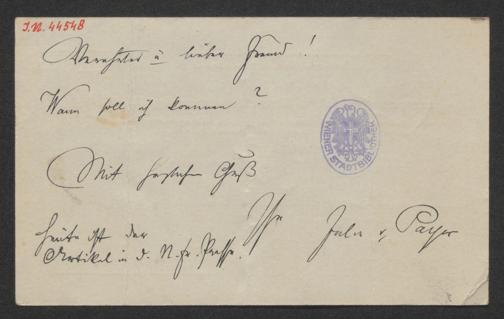 J.N. 44548
Verehrter u lieber Freund!
Wann soll ich kommen?
Mit herzlichem Gruß
Ihr Julu v. Payer
Heute ist der
Artikel in d. N. Fr. Presse.
WIENER STADTBIBLIOTHEK